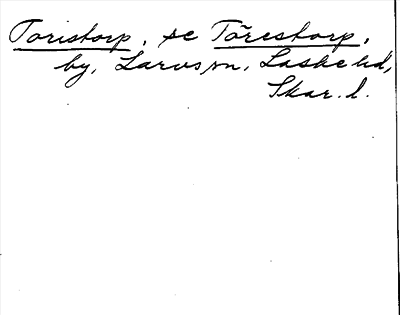 Toristorp, se Torestorp,
by, Larvs sn, Laske hd,
Skar. l.